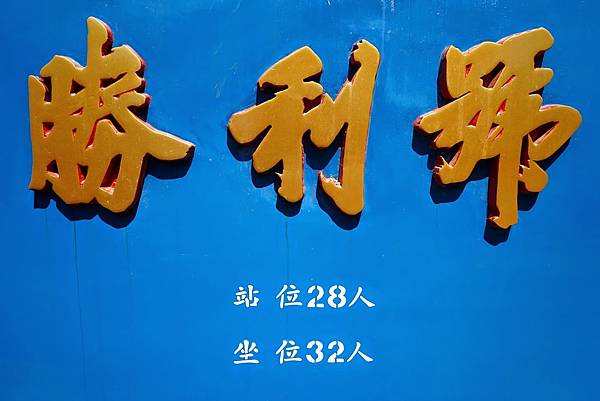 勝利號
站 位28人
坐 位32人